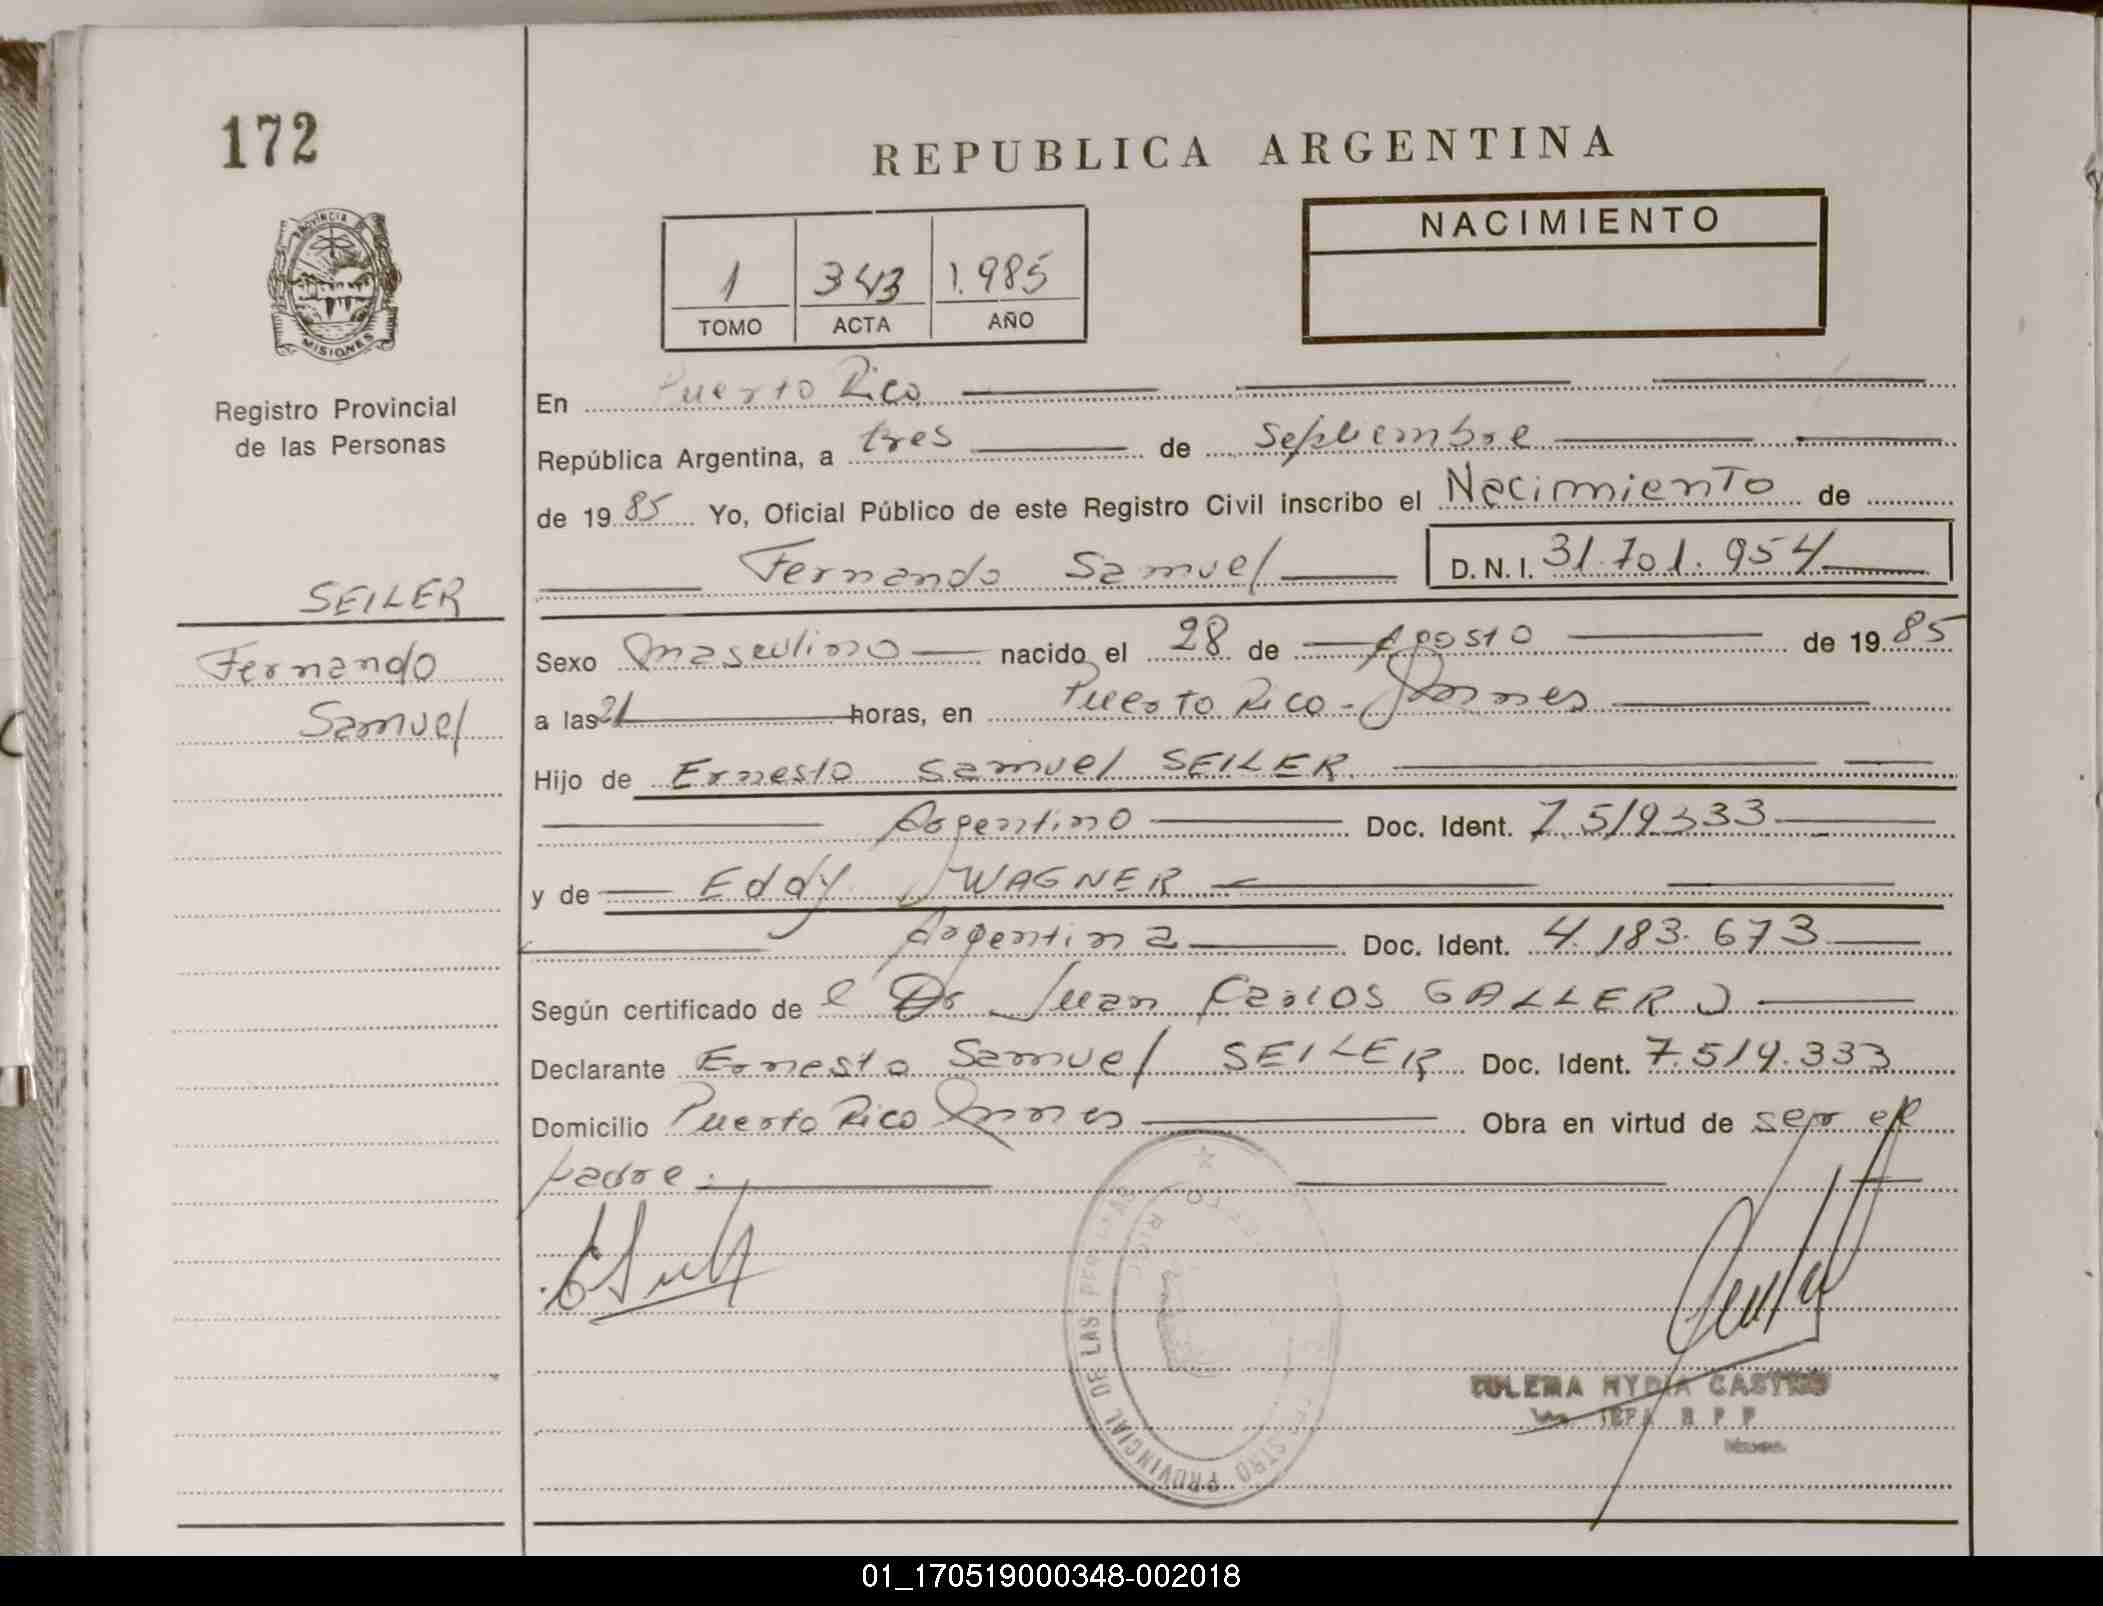 172
REPUBLICA ARGENTINA
PROVINCIA DE
MISIONES
Registro Provincial
de las Personas
NACIMIENTO
1 343 1.985
TOMO ACTA AÑO
En Puerto Rico
República Argentina, a tres de Septiembre
de 1985 Yo, Oficial Público de este Registro Civil inscribo el Nacimiento de
Fernando Samuel D.N.I. 31.701.954
SEILER
Fernando
Samuel
Sexo masculino nacido el 28 de Agosto de 1985
a las 21 horas, en Puerto Rico - Mnes
Hijo de Ernesto Samuel SEILER
Argentino Doc. Ident. 7.519.333
y de Eddy WAGNER
Argentina Doc. Ident. 4.183.673
Según certificado de el Dr Juan Carlos GALLERO
Declarante Ernesto Samuel SEILER Doc. Ident. 7.519.333
Domicilio Puerto Rico Mnes Obra en virtud de ser el
padre.
REGISTRO PROVINCIAL DE LAS PERSONAS
PUERTO RICO
ZULEMA NYDIA CASTRO
JEFA R P P
01_170519000348-002018